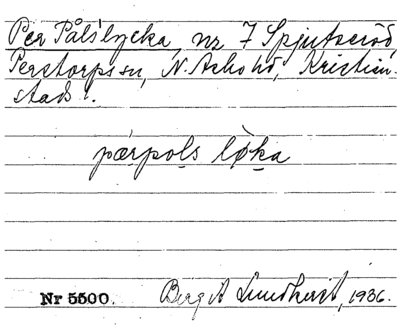 Per Påls lycka, nr 7 Spjutseröd,
Perstorps sn, N. Åsbo hd, Kristian-
stads l.
pærpols løka
Nr 5500. Birgit Lundkvist, 1936.